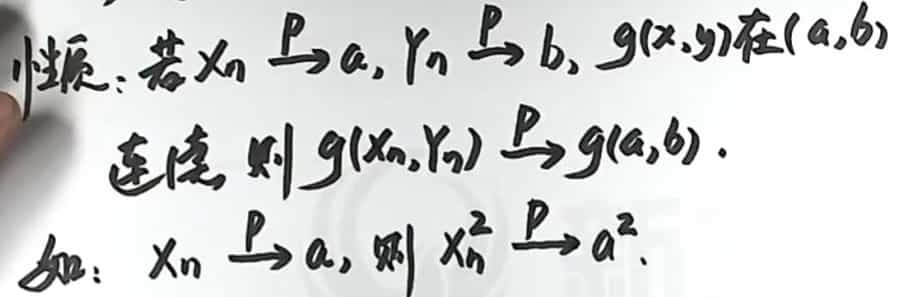 性质:若 Xn P→ a, Yn P→ b, g(x,y)在(a,b)
连续,则 g(Xn,Yn) P→ g(a,b).
如: Xn P→ a, 则 Xn² P→ a².